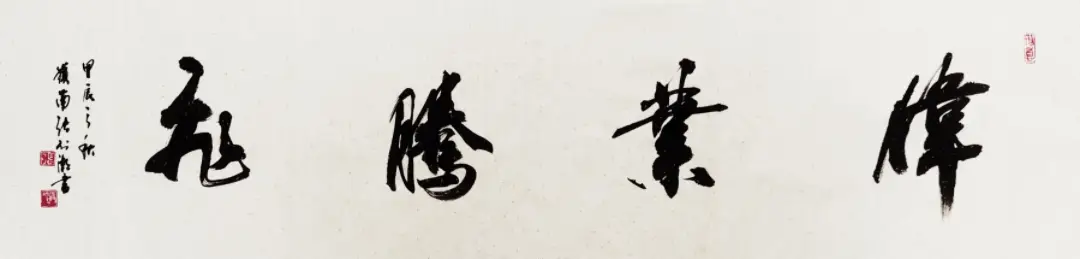 偉業騰飛
甲辰之秋
嶺南張
書